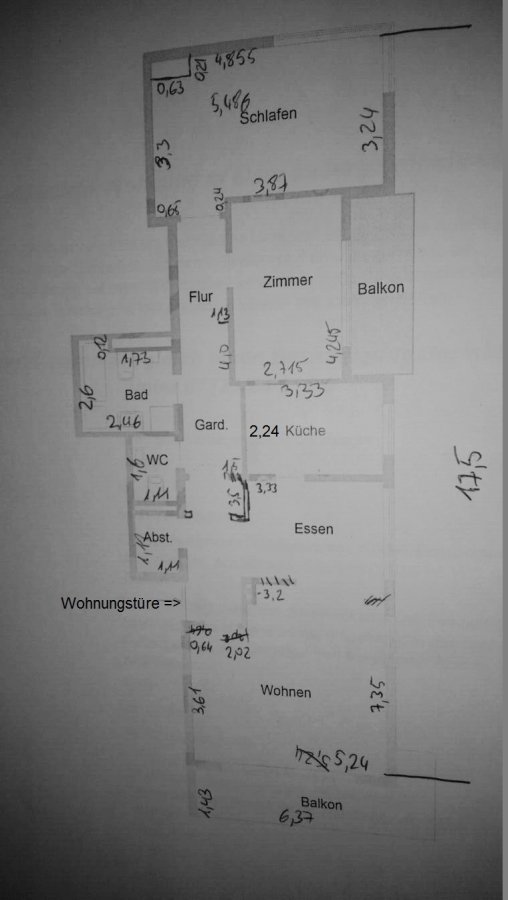 4,855
0,21
0,63
5,486
Schlafen
3,24
3,3
3,87
0,24
0,65
Zimmer
Balkon
Flur
1,13
4,0
4,245
2,715
0,12
1,73
3,33
2,6
Bad
2,46
Gard.
2,24 Küche
WC
1,6
17,5
3,33
3,5
1,11
Essen
Abst.
1,11
-3,2
Wohnungstüre =>
0,64
2,02
Wohnen
3,61
7,35
5,24
1,43
Balkon
6,37